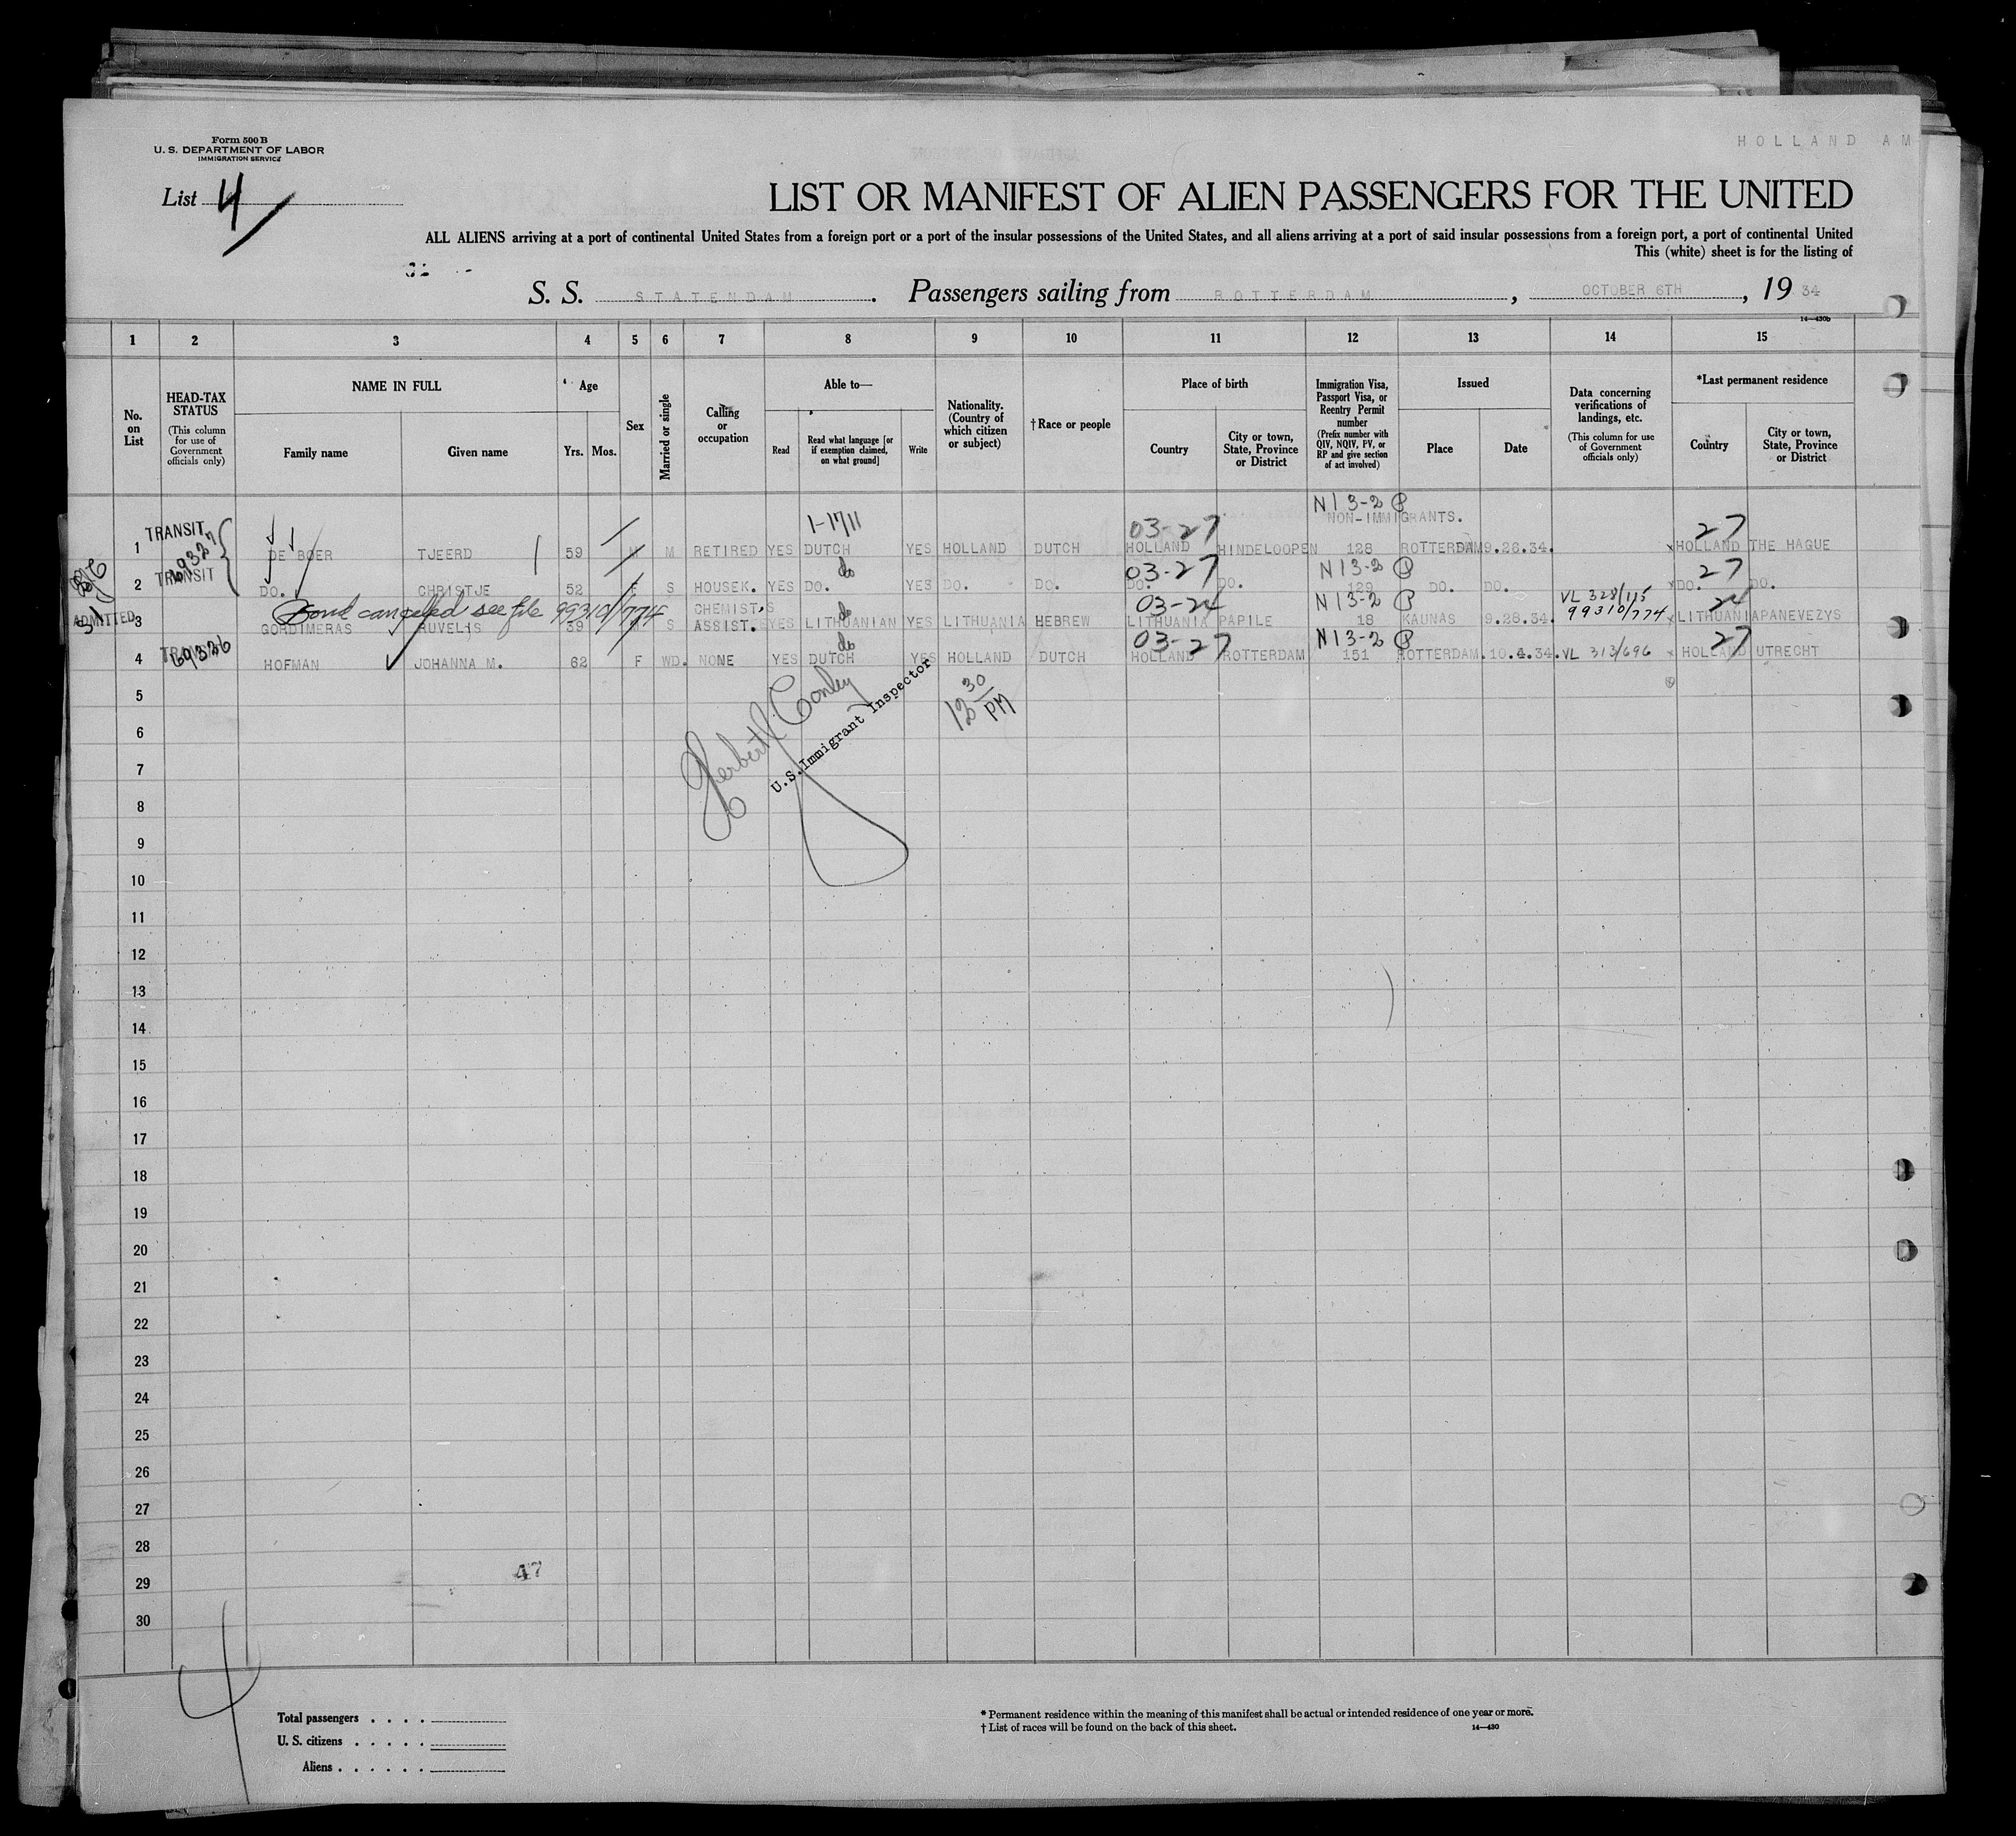 HOLLAND AM
Form 500 B
U. S. DEPARTMENT OF LABOR
IMMIGRATION SERVICE
List 4
LIST OR MANIFEST OF ALIEN PASSENGERS FOR THE UNITED
ALL ALIENS arriving at a port of continental United States from a foreign port or a port of the insular possessions of the United States, and all aliens arriving at a port of said insular possessions from a foreign port, a port of continental United
This (white) sheet is for the listing of
S. S. STATENDAM. Passengers sailing from ROTTERDAM, OCTOBER 6TH, 19 34
14—430b
1 2 3 4 5 6 7 8 9 10 11 12 13 14 15
No. on List
HEAD-TAX STATUS
(This column for use of Government officials only)
NAME IN FULL
Family name
Given name
Age
Yrs.
Mos.
Sex
Married or single
Calling or occupation
Able to—
Read
Read what language [or if exemption claimed, on what ground]
Write
Nationality. (Country of which citizen or subject)
†Race or people
Place of birth
Country
City or town, State, Province or District
Immigration Visa, Passport Visa, or Reentry Permit number
(Prefix number with QIV, NQIV, PV, or RP and give section of act involved)
Issued
Place
Date
Data concerning verifications of landings, etc.
(This column for use of Government officials only)
*Last permanent residence
Country
City or town, State, Province or District
N13-2
NON-IMMIGRANTS.
TRANSIT 1-1711 03-27 27
1 DE BOER TJEERD 59 M M RETIRED YES DUTCH YES HOLLAND DUTCH HOLLAND HINDELOOPEN 128 ROTTERDAM 9.28.34. x HOLLAND THE HAGUE
69327
TRANSIT do 03-27 N13-2 27
2 DO. CHRISTJE 52 F S HOUSEK. YES DO. YES DO. DO. DO. DO. 129 DO. DO. x DO. DO.
Bond canceled see file 99310/774 do 03-24 N13-2 VL 328/115 99310/774 24
ADMITTED 3 GORDIMERAS RUVELIS 39 M S CHEMIST,S ASSIST. YES LITHUANIAN YES LITHUANIA HEBREW LITHUANIA PAPILE 18 KAUNAS 9.28.34. x LITHUANIA PANEVEZYS
TRANSIT 69326 do 03-27 N13-2 27
4 HOFMAN JOHANNA M. 62 F WD. NONE YES DUTCH YES HOLLAND DUTCH HOLLAND ROTTERDAM 151 ROTTERDAM. 10.4.34. VL 313/696 x HOLLAND UTRECHT
5
6
7
Herbert Conley
U.S. Immigrant Inspector
12 30 PM
8
9
10
11
12
13
14
15
16
17
18
19
20
21
22
23
24
25
26
27
28
47
29
30
4
Total passengers . . . .
U. S. citizens . . . . .
Aliens . . . . . .
* Permanent residence within the meaning of this manifest shall be actual or intended residence of one year or more.
† List of races will be found on the back of this sheet.
14—430